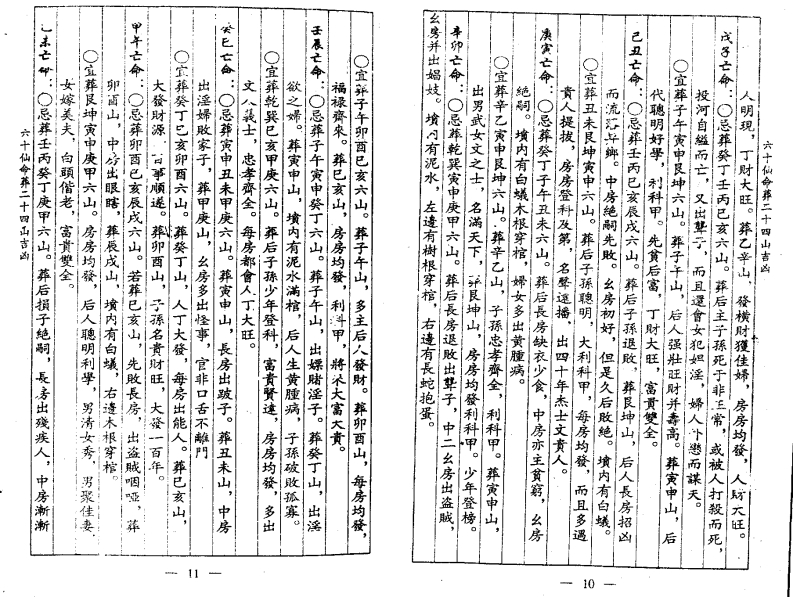 六十仙命葬二十四山吉凶
人明現，丁財大旺。葬乙辛山，發橫財獲佳婦，房房均發，人財大旺。
戊子亡命：○忌葬癸丁壬丙巳亥六山。葬后主子孫死于非正常，或被人打殺而死，
投河自縊而亡，又出聾子，而且還會女犯姐淫，婦人不懸而謀天。
○宜葬子午寅申艮坤六山。葬子午山，后人强壯旺財并壽高。葬寅申山，后
代聰明好學，利科甲。先貧后富，丁財大旺，富貴雙全。
己丑亡命：○忌葬壬丙巳亥辰戌六山。葬后子孫退敗，葬艮坤山，后人長房招凶
而流落異鄉。中房絕嗣先敗。幺房初好，但是久后敗絕。墳內有白蟻。
○宜葬丑未艮坤寅申六山。葬后子孫聰明，大利科甲，每房均發，而且多遇
貴人提拔，房房登科及第，名聲遠播，出四十年杰士文貴人。
庚寅亡命：○忌葬癸丁子午丑未六山。葬后長房缺衣少食，中房亦主貧窮，幺房
絕嗣。墳內有白蟻木根穿棺，婦女多出黃腫病。
○宜葬辛乙寅申艮坤六山。葬辛乙山，子孫忠孝齊全，利科甲。葬寅申山，
出男武女文之士，名滿天下，葬艮坤山，房房均發利科甲。少年登榜。
辛卯亡命：○忌葬乾巽寅申庚甲六山。葬后長房退敗出聾子，中二幺房出盜賊，
幺房并出娼妓。墳內有泥水，左邊有樹根穿棺，右邊有長蛇抱蛋。
— 10 —
○宜葬子午卯酉巳亥六山。葬子午山，多主后人發財。葬卯酉山，每房均發，
福祿齊來。葬巳亥山，房房均發，利科甲，將來大富大貴。
壬辰亡命：○忌葬子午寅申癸丁六山。葬子午山，出嫖賭淫子。葬癸丁山，出淫
欲之婦。葬寅申山，墳內有泥水滿棺，后人生黃腫病，子孫破敗孤寡。
○宜葬乾巽巳亥甲庚六山。葬后子孫少年登科，富貴賢達，房房均發，多出
文人義士，忠孝齊全。每房都會人丁大旺。
癸巳亡命：○忌葬寅申丑未甲庚六山。葬寅申山，長房出跛子。葬丑未山，中房
出淫婦敗家子，葬甲庚山，幺房多出怪事，官非口舌不離門
○宜葬癸丁巳亥卯酉六山。葬癸丁山，人丁大發，每房出能人。葬巳亥山，
大發財源，百事順遂。葬卯酉山，子孫名貴財旺，大發一百年。
甲午亡命：○忌葬卯酉巳亥辰戌六山。若葬巳亥山，先敗長房，出盜賊啞啞，葬
卯酉山，中房出眼瞎，葬辰戌山，墳內有白蟻，右邊木根穿棺。
○宜葬艮坤寅申庚甲六山。房房均發，后人聰明利學，男清女秀，男聚佳妻
女嫁美夫，白頭偕老，富貴雙全。
乙未亡命：○忌葬壬丙癸丁庚甲六山。葬后損子絕嗣，長房出殘疾人，中房漸漸
六十仙命葬二十四山吉凶
— 11 —